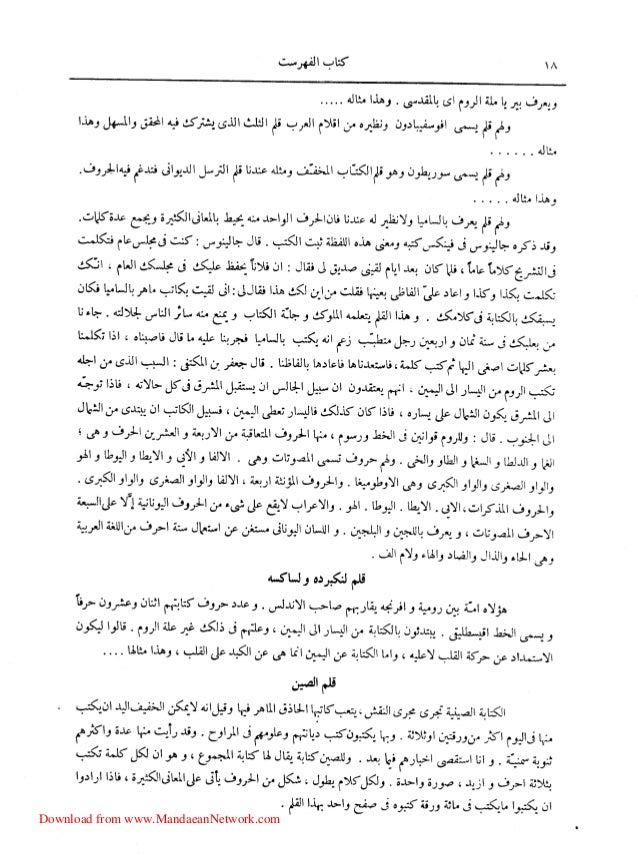 ١٨
كتاب الفهرست
ويعرف بير يا ملة الروم اى بالمقدسى . وهذا مثاله .....
ولهم قلم يسمى افوسفيبادون ونظيره من اقلام العرب قلم الثلث الذى يشترك فيه المحقق والمسهل وهذا
مثاله ......
ولهم قلم يسمى سوريطون وهو قلم الكتّاب المخفّف ومثله عندنا قلم الترسل الديوانى فتدغم فيه الحروف.
وهذا مثاله .....
ولهم قلم يعرف بالساميا ولانظير له عندنا فان الحرف الواحد منه يحيط بالمعانى الكثيرة ويجمع عدة كلمات.
وقد ذكره جالينوس فى فينكس كتبه ومعنى هذه اللفظة ثبت الكتب . قال جالينوس : كنت فى مجلس عام فتكلمت
فى التشريح كلاماً عاماً ، فلما كان بعد ايام لقينى صديق لى فقال : ان فلاناً يحفظ عليك فى مجلسك العام ، انّك
تكلمت بكذا وكذا و اعاد علىّ الفاظى بعينها فقلت من اين لك هذا فقال لى: انى لقيت بكاتب ماهر بالساميا فكان
يسبقك بالكتابة فى كلامك . و هذا القلم يتعلمه الملوك و جلة الكتاب و يمنع منه سائر الناس لجلالته . جاءنا
من بعلبك فى سنة ثمان و اربعين رجل متطبّب زعم انه يكتب بالساميا فجربنا عليه ما قال فاصبناه ، اذا تكلمنا
بعشر كلمات اصغى اليها ثم كتب كلمة ، فاستعدناها فاعادها بالفاظنا . قال جعفر بن المكتفى : السبب الذى من اجله
تكتب الروم من اليسار الى اليمين ، انهم يعتقدون ان سبيل الجالس ان يستقبل المشرق فى كل حالاته ، فاذا توجّه
الى المشرق يكون الشمال على يساره ، فاذا كان كذلك فاليسار تعطى اليمين ، فسبيل الكاتب ان يبتدى من الشمال
الى الجنوب . قال : وللروم قوانين فى الخط ورسوم ، منها الحروف المتعاقبة من الاربعة و العشرين الحرف و هى ؛
الغما و الدلطا و السغما و الطاو والخى . ولهم حروف تسمى المصوتات وهى . الالفا و الأنى و الايطا و اليوطا و الهو
والواو الصغرى والواو الكبرى وهى الاوطوميغا . والحروف المؤنثة اربعة ، الالفا والواو الصغرى والواو الكبرى .
والحروف المذكرات، الانى. الايطا . اليوطا . الهو . والاعراب لايقع على شىء من الحروف اليونانية إلّا على السبعة
الاحرف المصوتات ، و يعرف باللجين و البلجين . و اللسان اليونانى مستغن عن استعمال ستة احرف من اللغة العربية
وهى الحاء والذال والضاد والهاء ولام الف .
قلم لنكبرده و لساكسه
هؤلاء امّة بين رومية و افرنجه يقاربهم صاحب الاندلس . و عدد حروف كتابتهم اثنان وعشرون حرفاً
و يسمى الخط اقيسطليقى . يبتدئون بالكتابة من اليسار الى اليمين ، وعلتهم فى ذلك غير علة الروم . قالوا ليكون
الاستمداد عن حركة القلب لاعليه ، واما الكتابة عن اليمين انما هى عن الكبد على القلب ، وهذا مثالها ....
قلم الصين
الكتابة الصينية تجرى مجرى النقش، يتعب كاتبها الحاذق الماهر فيها وقيل انه لايمكن الخفيف اليد ان يكتب
منها فى اليوم اكثر من ورقتين اوثلاثة . وبها يكتبون كتب ديانتهم وعلومهم فى المراوح . وقد رأيت منها عدة واكثرهم
ثنوية سمنيّة . و انا استقصى اخبارهم فيما بعد . وللصين كتابة يقال لها كتابة المجموع ، و هو ان لكل كلمة تكتب
بثلاثة احرف و ازيد ، صورة واحدة . ولكل كلام يطول ، شكل من الحروف يأتى على المعانى الكثيرة ، فاذا ارادوا
ان يكتبوا مايكتب فى مائة ورقة كتبوه فى صفح واحد بهذا القلم .
Download from www.MandaeanNetwork.com